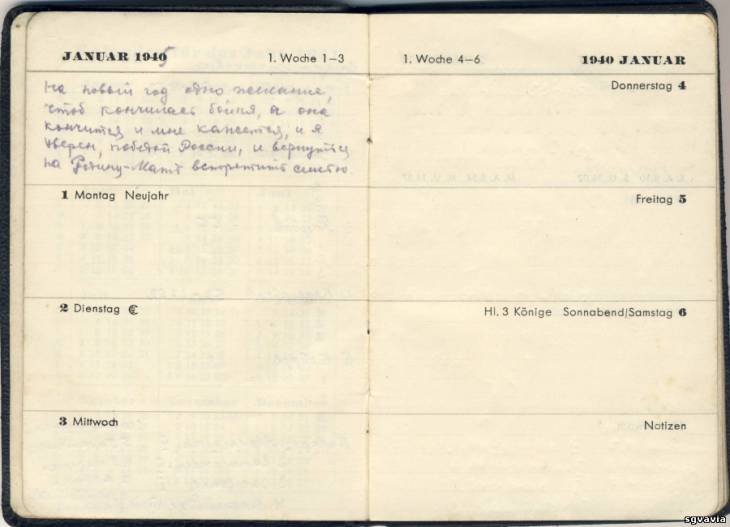 JANUAR 1940 5 1. Woche 1–3
На новый год одно желание,
чтоб кончилась бойня, а она
кончится и мне кажется, и я
уверен, победой России, и вернуться
на Родину-Мать встретить семью.
1 Montag Neujahr
2 Dienstag
3 Mittwoch
1. Woche 4–6 1940 JANUAR
Donnerstag 4
Freitag 5
Hl. 3 Könige Sonnabend/Samstag 6
Notizen
sgvavia